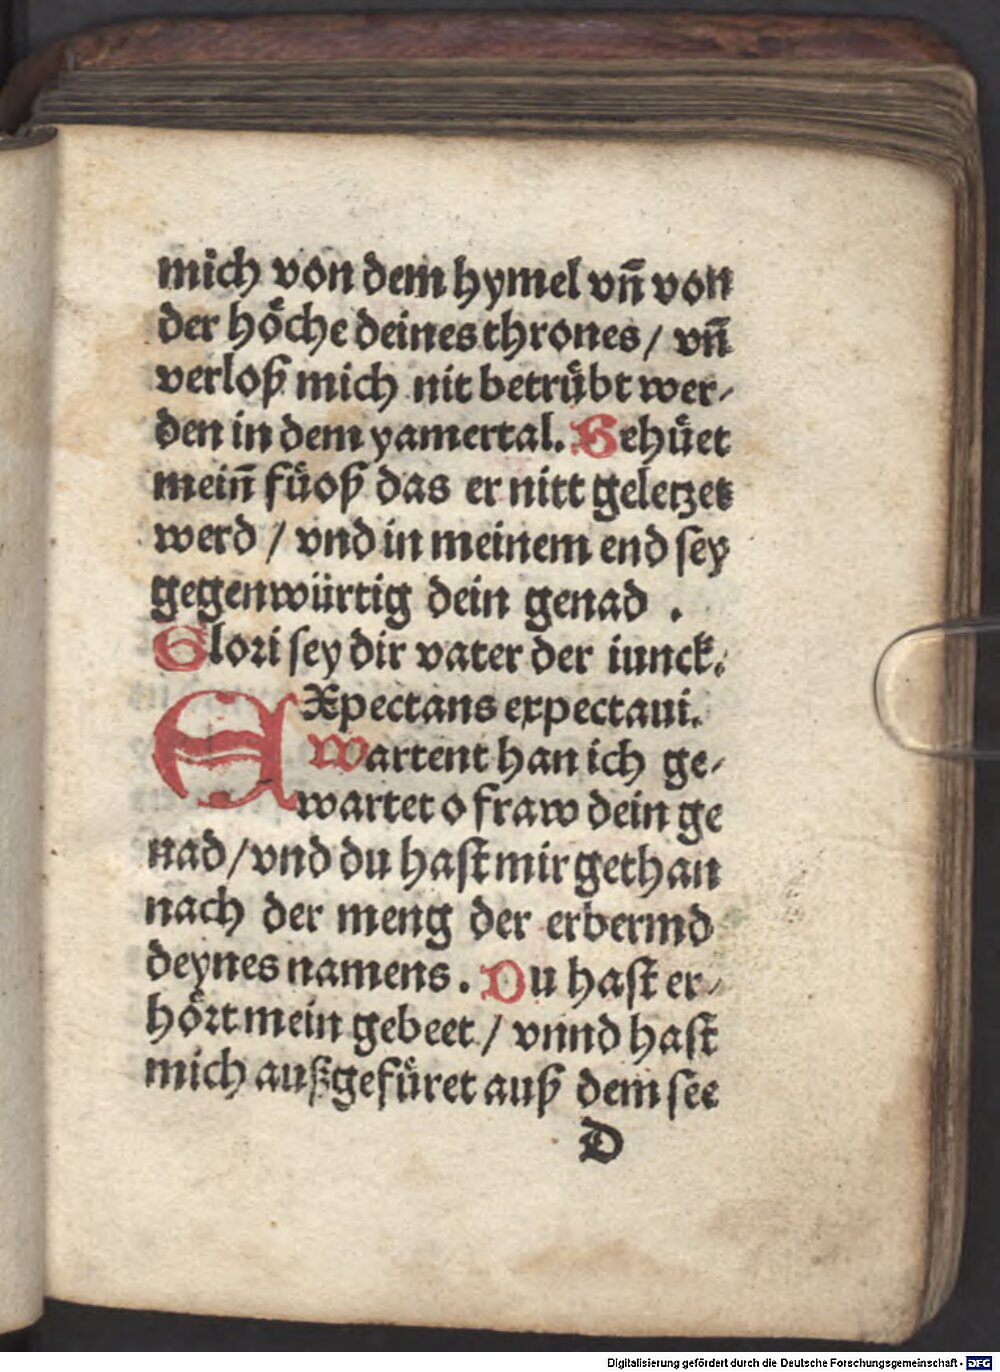 mich von dem hymel vn̄ von
der hoͤche deines thrones / vn̄
verloß mich nit betruͤbt wer-
den in dem yamertal. Behuͤet
mein̄ fuͤoß das er nitt geletzet
werd / vnd in meinem end sey
gegenwürtig dein genad .
Glori sey dir vater der iunck.
EXpectans expectaui.
Wartent han ich ge-
wartet o fraw dein ge
nad / vnd du hast mir gethan
nach der meng der erbermd
deynes namens . Du hast er-
hoͤrt mein gebeet / vnnd hast
mich außgefuͤret auß dem see
D
Digitalisierung gefördert durch die Deutsche Forschungsgemeinschaft - DFG